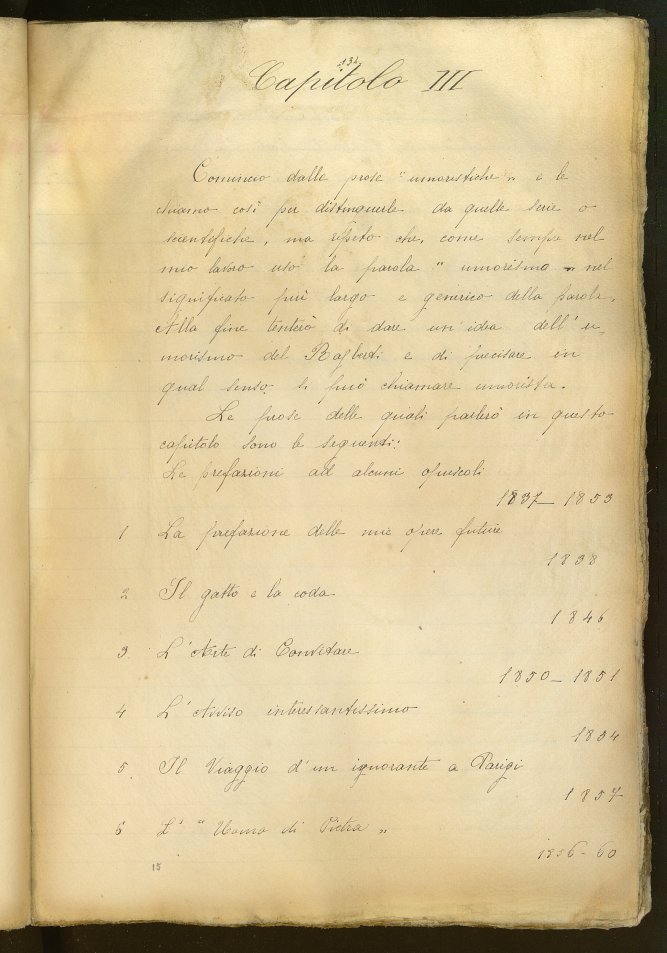 131
Capitolo III
Comincio dalle prose "umoristiche" e le
chiamo così per distinguerle da quelle serie o
scientifiche, ma ripeto che, come sempre nel
mio lavoro uso la parola "umorismo" nel
significato più largo e generico della parola.
Alla fine tenterò di dare un'idea dell'u-
morismo del Rajberti e di precisare in
qual senso si può chiamare umorista.
Le prose delle quali parlerò in questo
capitolo sono le seguenti:
Le prefazioni ad alcuni opuscoli
1837_1853
1 La prefazione delle mie opere future
1838
2 Il gatto e la coda
1846
3. L'Arte di Convitare
1850_1851
4 L'Avviso interessantissimo
1854
5. Il Viaggio d'un ignorante a Parigi
1857
6 L'"Uomo di Pietra"
1856-60
15